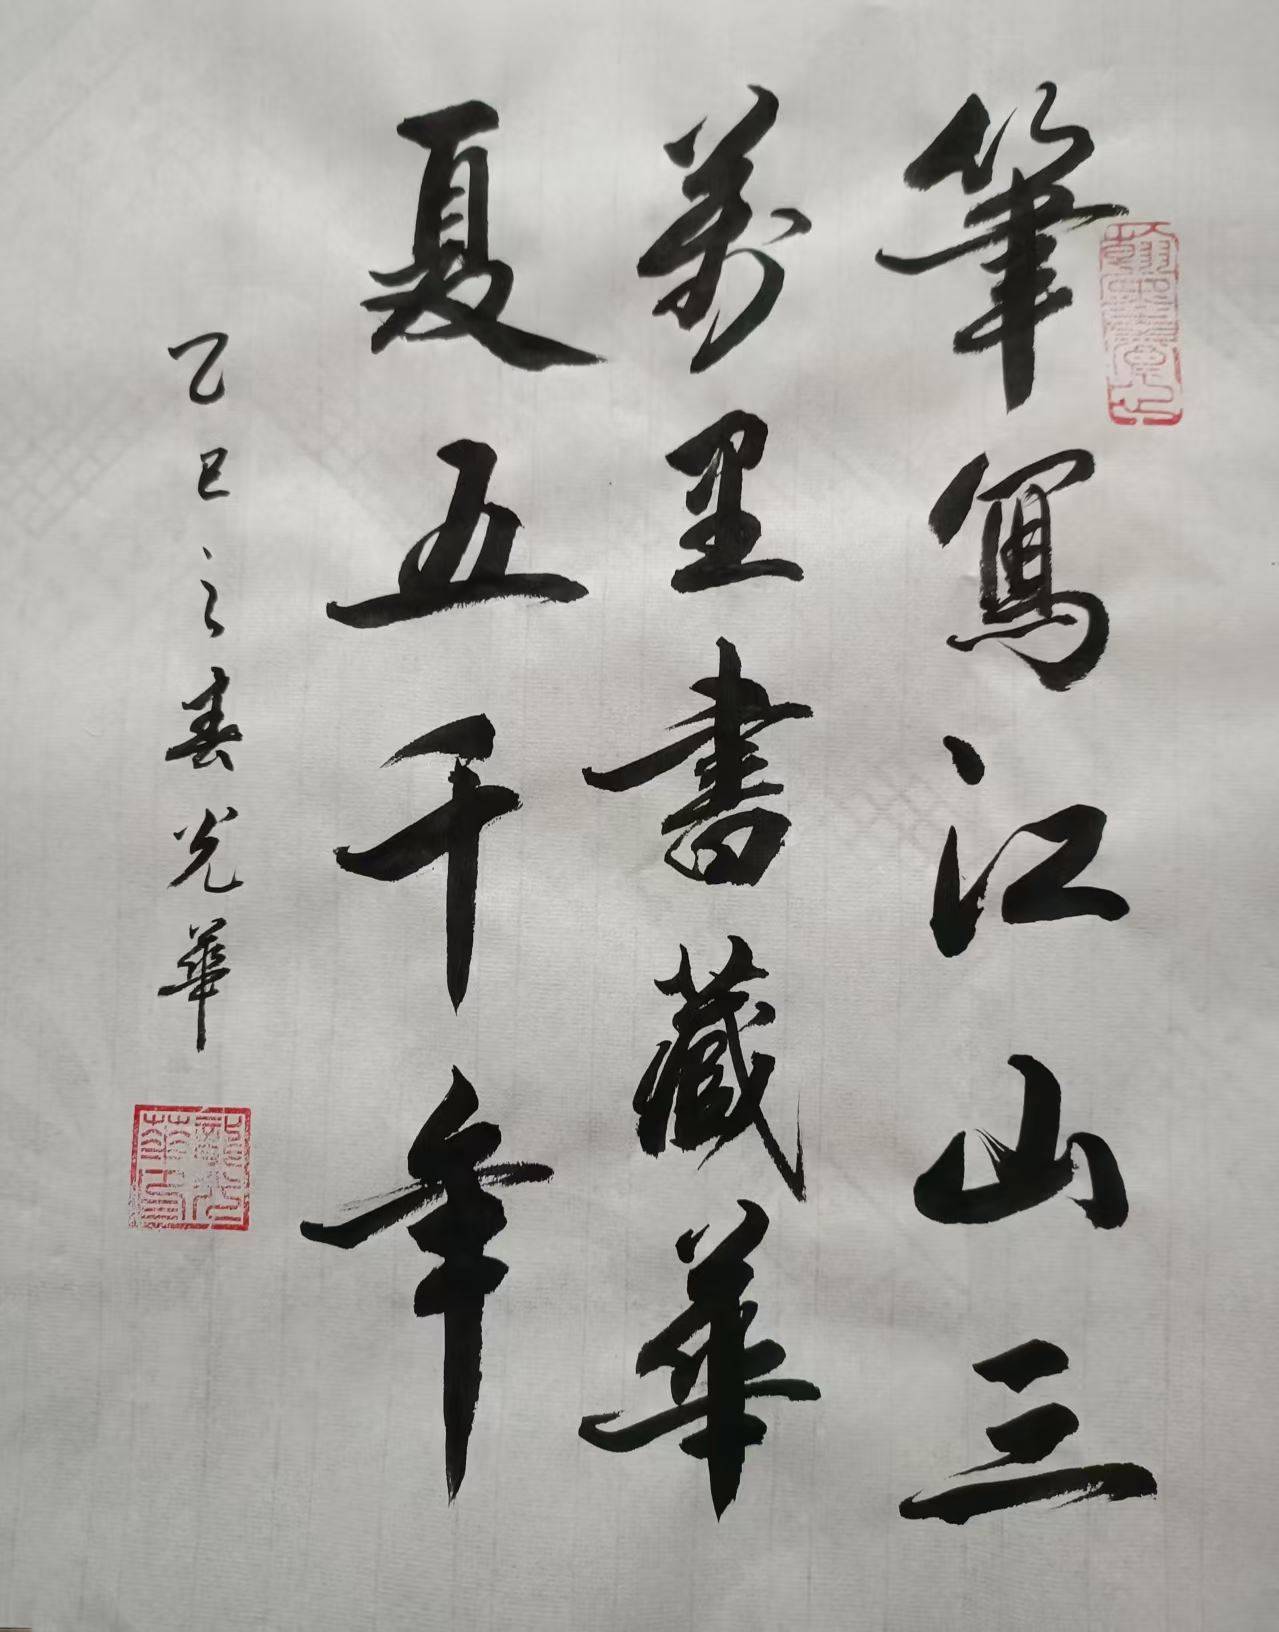 筆寫江山三
萬里書藏華
夏五千年
乙巳之春光華